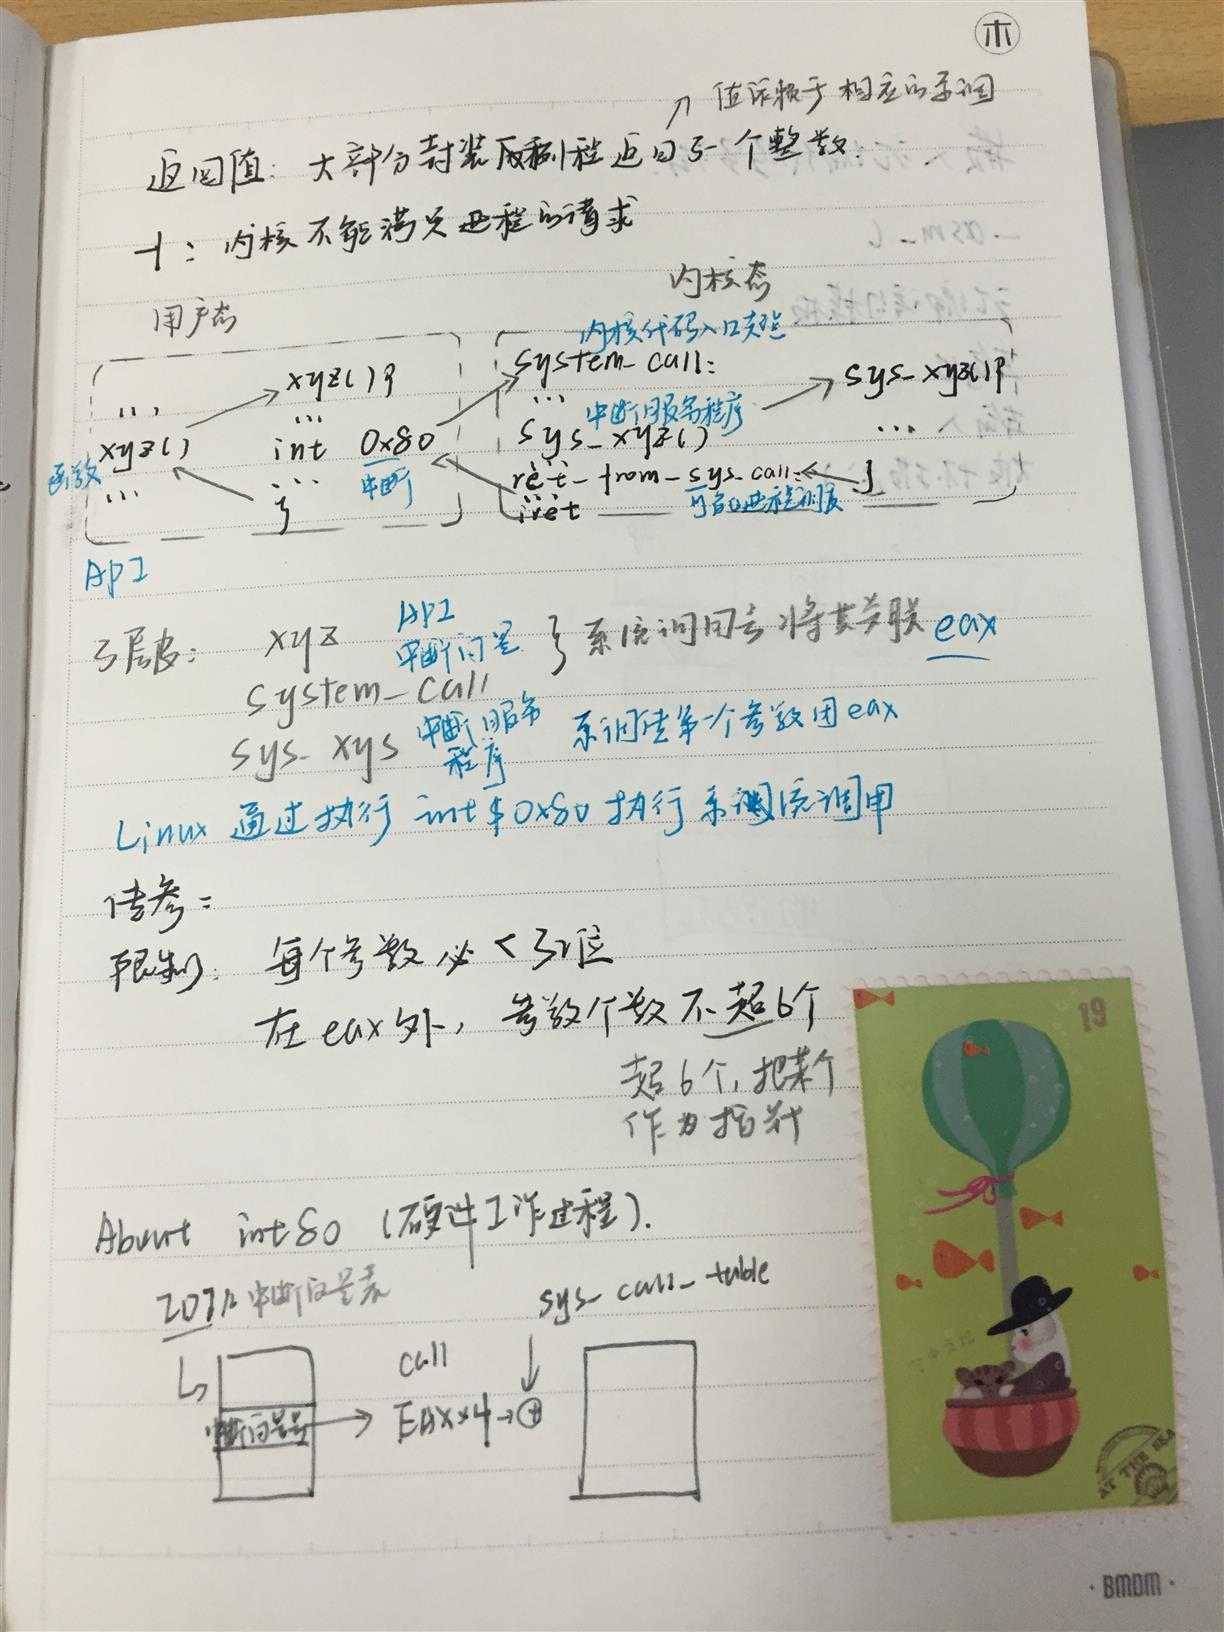 木
值依赖于相应的系调
返回值：大部分封装成例程返回了一个整数.
-1：内核不能满足进程的请求
用户态
内核态
内核代码入口起点
xyz(){
system_call:
sys_xyz(){
...
...
...
中断服务程序
xyz()
int 0x80
sys_xyz()
...
函数
中断
ret_from_sys_call:
}
...
...
...
}
iret
可能的进程调度
API
3层皮：
xyz
API
中断向量
} 系统调用号将其关联 eax
system_call
sys_xys
中断服务
程序
系调传第一个参数用eax
Linux 通过执行 int $0x80 执行系统调用
传参：
限制：每个参数必 < 32位
在eax外，参数个数不超6个
超6个，把某个
作为指针
About int80 (硬件工作过程).
中断向量表
sys_call_table
call
中断向量号
EAX×4
+
19
AT THE SEA
·BMDM·